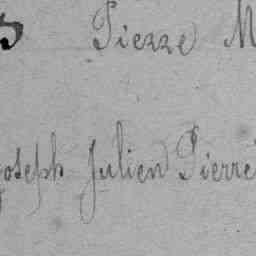 Pierre M
Joseph Julien Pierre